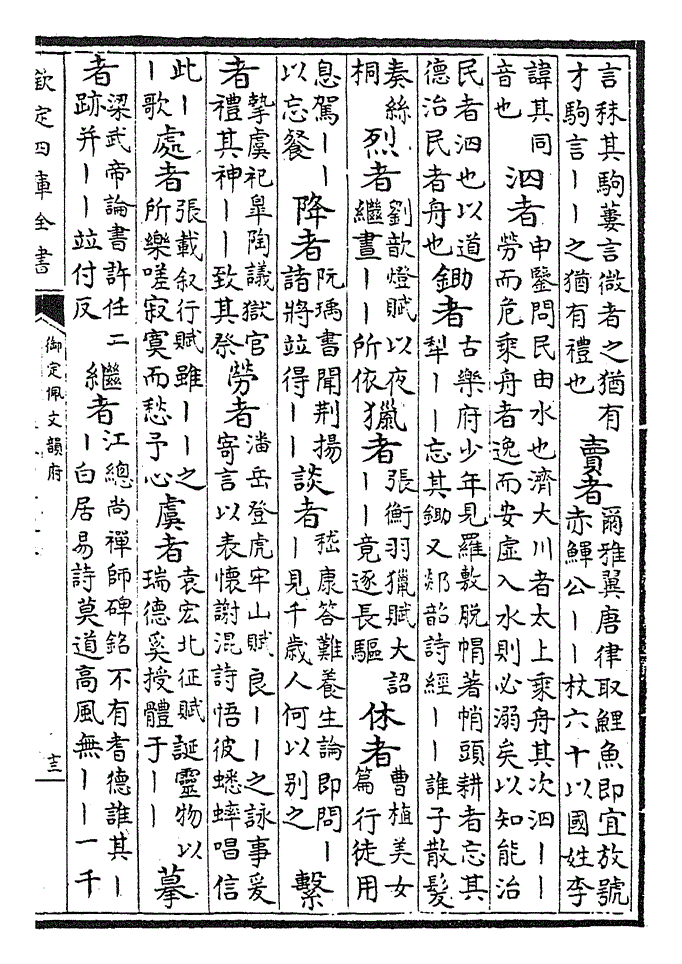 言秣其駒蔞言微者之猶有
才駒言丨丨之猶有禮也
賣者
爾雅翼唐律取鯉魚即宜放號
赤鯶公丨丨杖六十以國姓李
諱其同
音也
泅者
申鑒問民由水也濟大川者太上乘舟其次泅丨丨
勞而危乘舟者逸而安虛入水則必溺矣以知能治
民者泅也以道
德治民者舟也
鋤者
古樂府少年見羅敷脫帽著帩頭耕者忘其
犁丨丨忘其鋤又郯韶詩經丨丨誰子散髮
奏絲
桐
烈者
劉歆燈賦以夜
繼晝丨丨所依
獵者
張衡羽獵賦大詔
丨丨竟逐長驅
休者
曹植美女
篇行徒用
息駕丨丨
以忘餐
降者
阮瑀書聞荆揚
諸將竝得丨丨
談者
嵇康答難養生論即問丨
丨見千歲人何以別之
繫
者
摯虞祀臯陶議獄官
禮其神丨丨致其祭
勞者
潘岳登虎牢山賦良丨丨之詠事爰
寄言以表懷謝混詩悟彼蟋蟀唱信
此丨
丨歌
處者
張載叙行賦雖丨丨之
所樂嗟寂寞而愁予心
虞者
袁宏北征賦誕靈物以
瑞德奚授體于丨丨
摹
者
梁武帝論書許任二
跡并丨丨竝付反
繼者
江總尚禪師碑銘不有耆德誰其丨
丨白居易詩莫道高風無丨丨一千
欽定四庫全書
御定佩文韻府